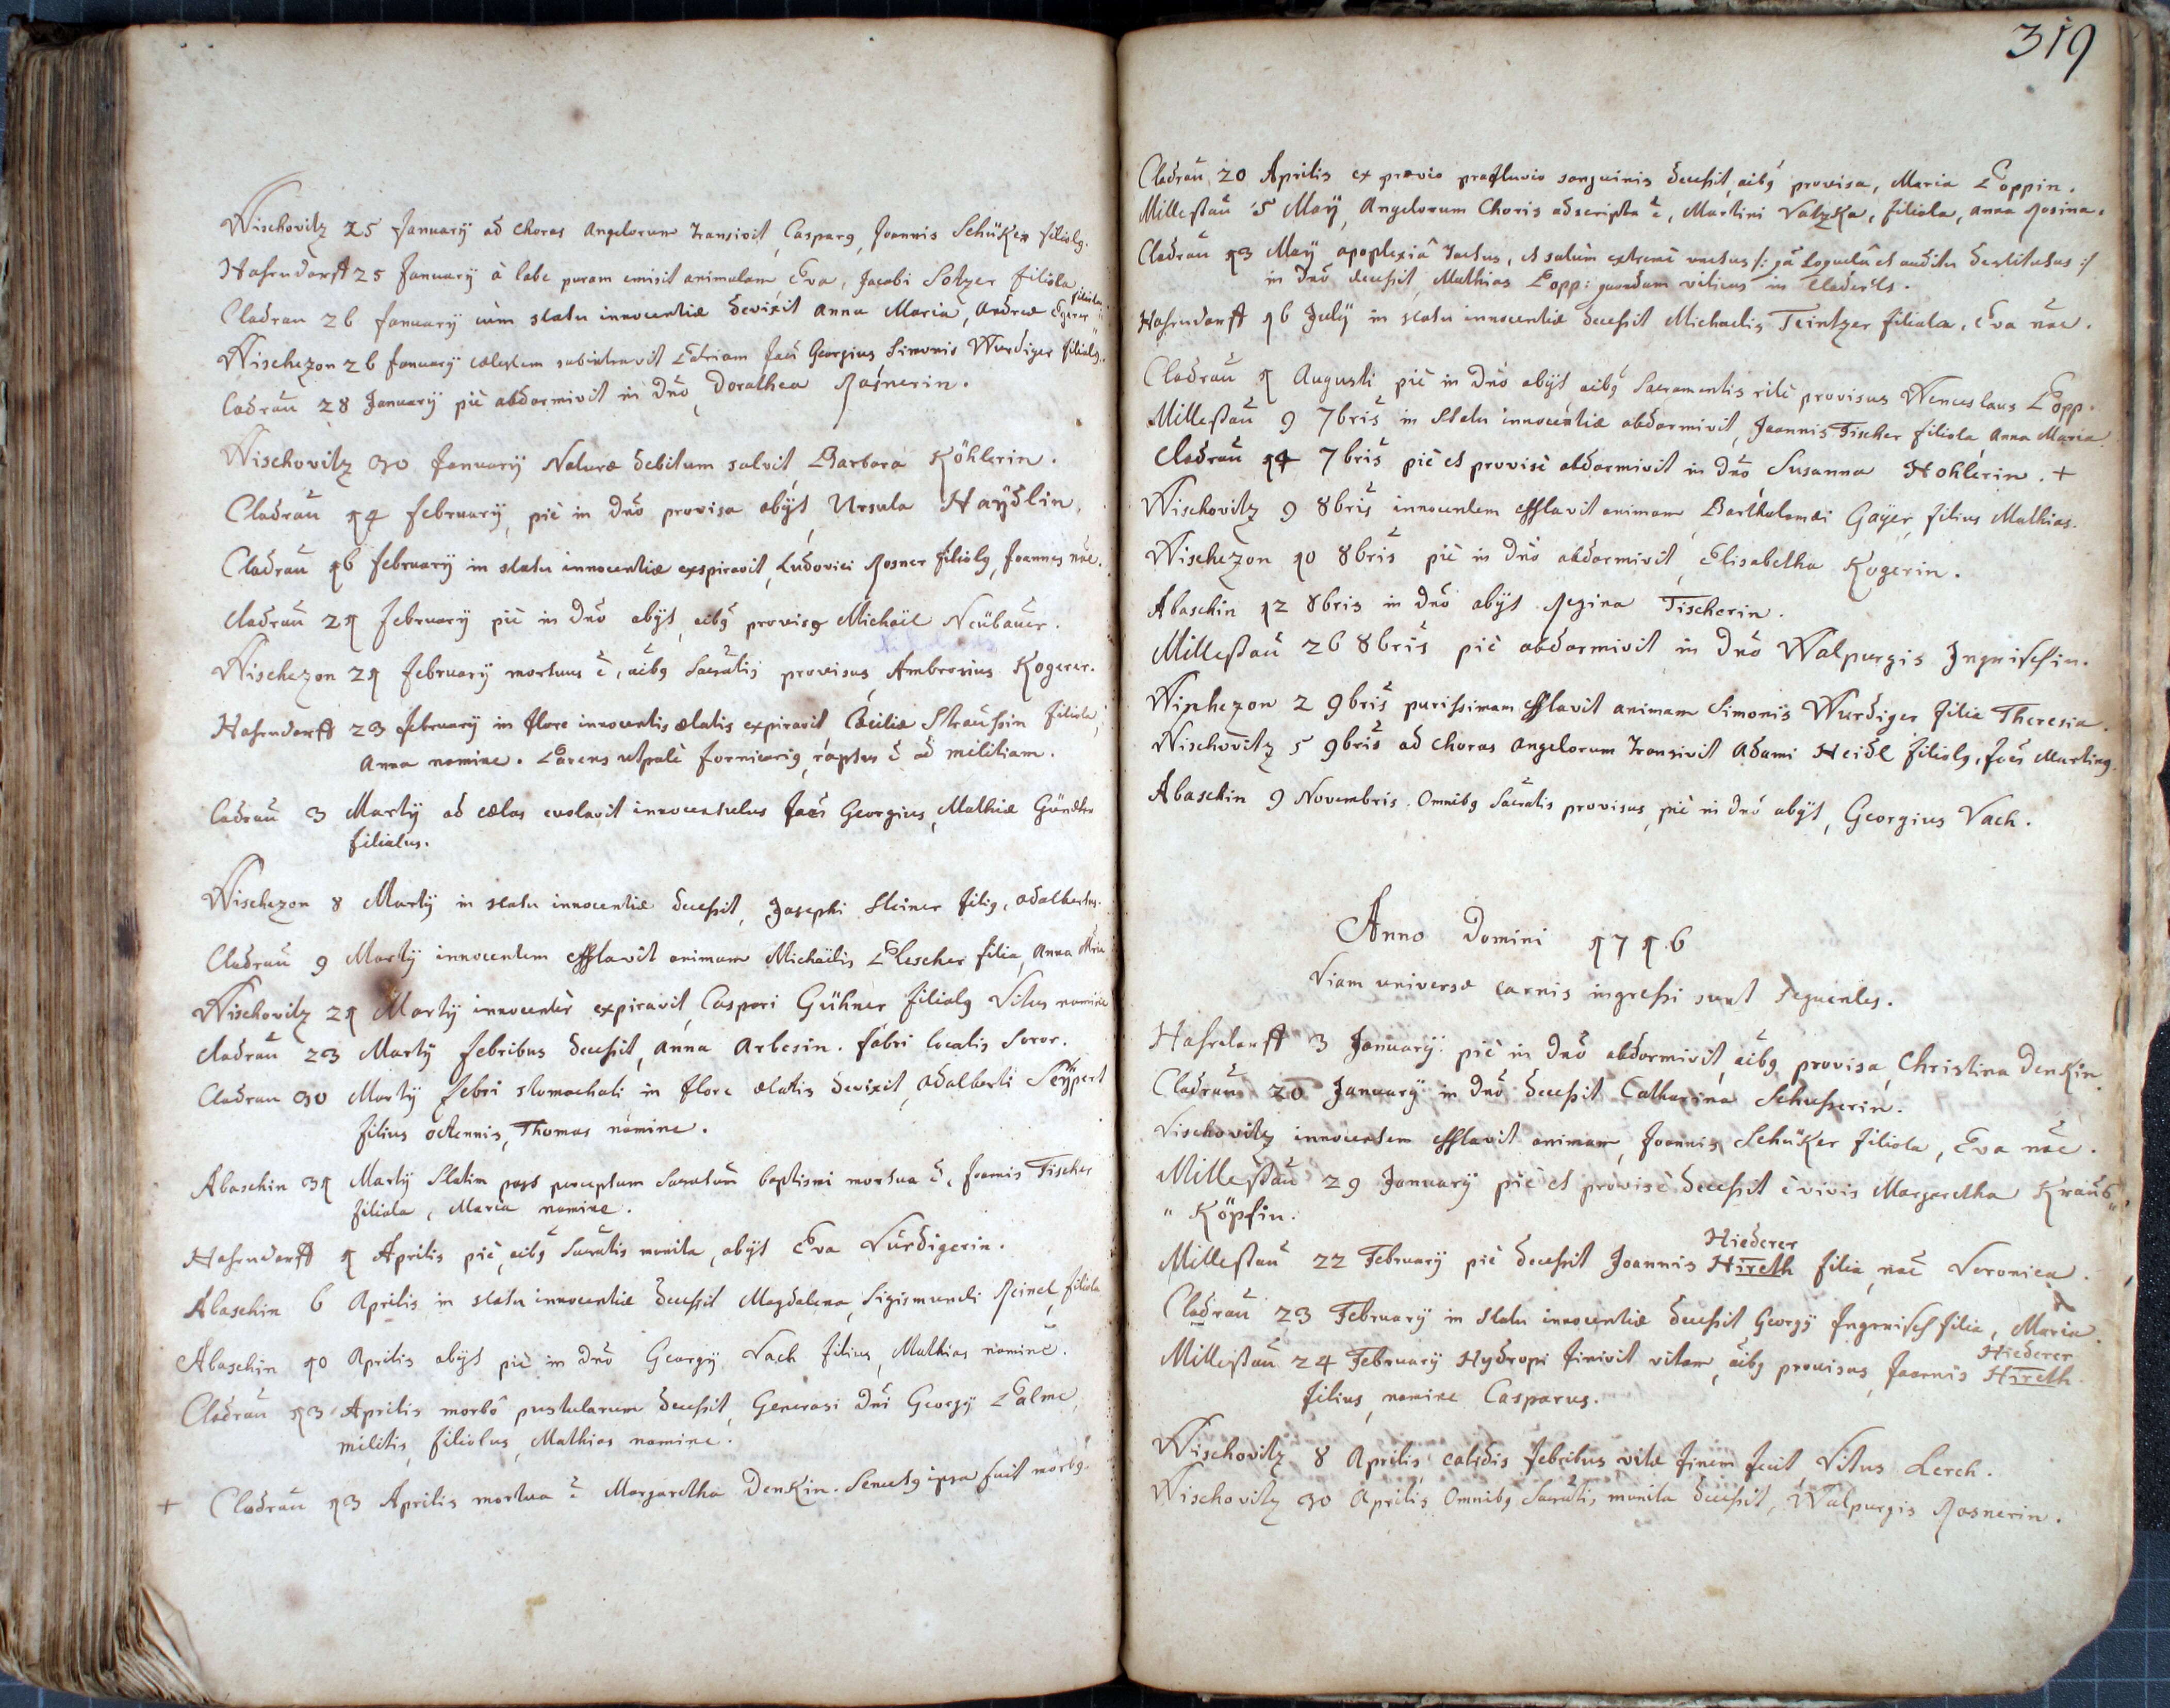 Wischovitz 25 Januarÿ ad choros Angelorum transivit, Casparg, Joannis Schüker filiolg.
Hafrndorff 25 Januarÿ à labe puram emisit animulam Eva, Jacobi Sotzer filiola
Cladrau 26 Januarÿ cum statu innocentiæ devixit Anna Maria, Andreæ Egerer filiola
Wischezon 26 Januarÿ cœlestem subintravit Patriam Joañ Georgius Simonis Wurdiger filiolg.
Cadrau 28 Januarÿ piè abdormivit in Dño, Dorathea Rosnerin.
Wischovitz 30 Januarÿ Naturæ debitum solvit Barbara Köhlerin.
Cladrau 14 februarÿ, piè in Dño provisa obÿt, Ursula Haÿdlin.
Cladrau 16 februarÿ in statu innocentiæ exspiravit, Ludovici Rosner filiolg, Joannes nõe.
Cladrau 21 februarÿ piè in Dño obÿt, oibg provisg Michäel Neübauer.
Wischezon 21 februarÿ mortuus ẽ, oibg Sacrãtis provisus Ambrosius Kogerer.
Hafrndorff 23 februarÿ in flore innocentis ætatis expiravit, Cæciliæ Straussin filiola,
Anna nomine. Parens utpotè fornicarig, raptus ẽ ad militiam.
Cadrau 3 Martÿ ad cælos evolavit innocentulus Joañ Georgius, Mathiæ Günther
filiolus.
Wischezon 8 Martÿ in statu innocentiæ decessit, Josephi Steiner filig, Adalbertus.
Cladrau 9 Martÿ innocentem efflavit animam Michäelis Plescher filia, Anna Mria
Wischovitz 21 Martÿ innocenter expiravit, Caspari Gühner filiolg Vitus nomine
Cladrau 23 Martÿ febribus decessit, Anna Arbesin. fabri localis Soror.
Cladrau 30 Martÿ febri stomachali in flore ætatis devixit, Adalberti Seÿpert
filius octennis, Thomas nomine.
Abaschin 31 Martÿ Statim post perceptum Sacratum baptismi mortua ẽ, Joannis Fischer
filiola, Maria nomine.
Hafrndorff 1 Aprilis piè, oibg Sacrãtis munita, obÿt Eva Würdigerin.
Abaschin 6 Aprilis in statu innocentiæ decessit Magdalena, Sigismundi Reinel filiola
Abaschin 10 Aprilis obÿt piè in Dño Georgÿ Vach filius, Mathias nomine.
Cladrau 13 Aprilis morbô pustularum decessit, Generosi Dñi Georgÿ Palme,
militis, filiolus, Mathias nomine.
+ Cladrau 13 Aprilis mortua ẽ Margaretha Denkin. Senectg ipsa fuit morbg.
319
Cladrau 20 Aprilis ex prævio profluvio sanguinis decessit, oibg provisa, Maria Poppin.
Millestau 5 Maÿ, Angelorum Choris adscripta ẽ, Martini Vatzka, filiola, Anna Rosina.
Cladrau 13 Maÿ apoplexiâ tactus, et solùm extremè unctus /: jã Loquelâ et auditu destitutus :/
in Dño decessit, Mathias Popp: quondam vilicus in
Hafrndorff 16 Julÿ in statu innocentiæ decessit Michaelis Teintzer filiola, Eva nõe.
Cladrau 1 Augusti piè in Dño obÿt oibg Sacramentis ritè provisus Wenceslaus Popp.
Millestau 9 7bris in Statu innocentiæ abdormivit, Joannis Fischer filiola Anna Maria.
Cladrau 14 7bris piè et provisè abdormivit in Dño Susanna Hohlerin. +
Wischovitz 9 8bris innocentem efflavit animam, Bartholomæi Gaÿer, filius Mathias.
Wischezon 10 8bris piè in Dño abdormivit, Elisabetha Kogerin.
Abaschin 12 8bris in Dño obÿt Regina Fischerin.
Millestau 26 8bris piè abdormivit in Dño Walpurgis Ingrischin.
Wischezon 2 9bris purissimam efflavit animam Simonis Wurdiger filia Theresia.
Wischovitz 5 9bris ad choros Angelorum transivit Adami Heidl filiolg, Joes Marting.
Abaschin 9 Novembris, Omnibg Sacrãtis provisus, piè in Dño obÿt, Georgius Vach.
Anno Domini 1716
Viam universæ carnis ingressi sunt sequentes.
Hafrdorff 3 Januarÿ piè in Dño abdormivit, oibg provisa, Christina Denkin
Cladrau 20 Januarÿ in Dño decessit Catharina Schusserin.
Vischovitz innocentem efflavit animam, Joannis Schüker filiola, Eva nõe.
Millestau 29 Januarÿ piè et provisè decessit è vivis Margaretha Kraus„
„ Köpfin.
Hiederer
Millestau 22 Februarÿ piè decessit Joannis Hireth filia, nõe Veronica.
Cladrau 23 Februarÿ in Statu innocentiæ decessit Georgÿ Ingrisch filia, Maria.
Hiederer
Millestau 24 Februarÿ Hydropi finivit vitam, oibg provisus, Joannis Hireth.
filius, nomine Casparus.
Wischovitz 8 Aprilis calidis febribus vitæ finem fecit, Vitus Lerch.
Wischovitz 30 Aprilis Omnibg Sacrãtis munita decessit, Walpurgis Rosnerin.